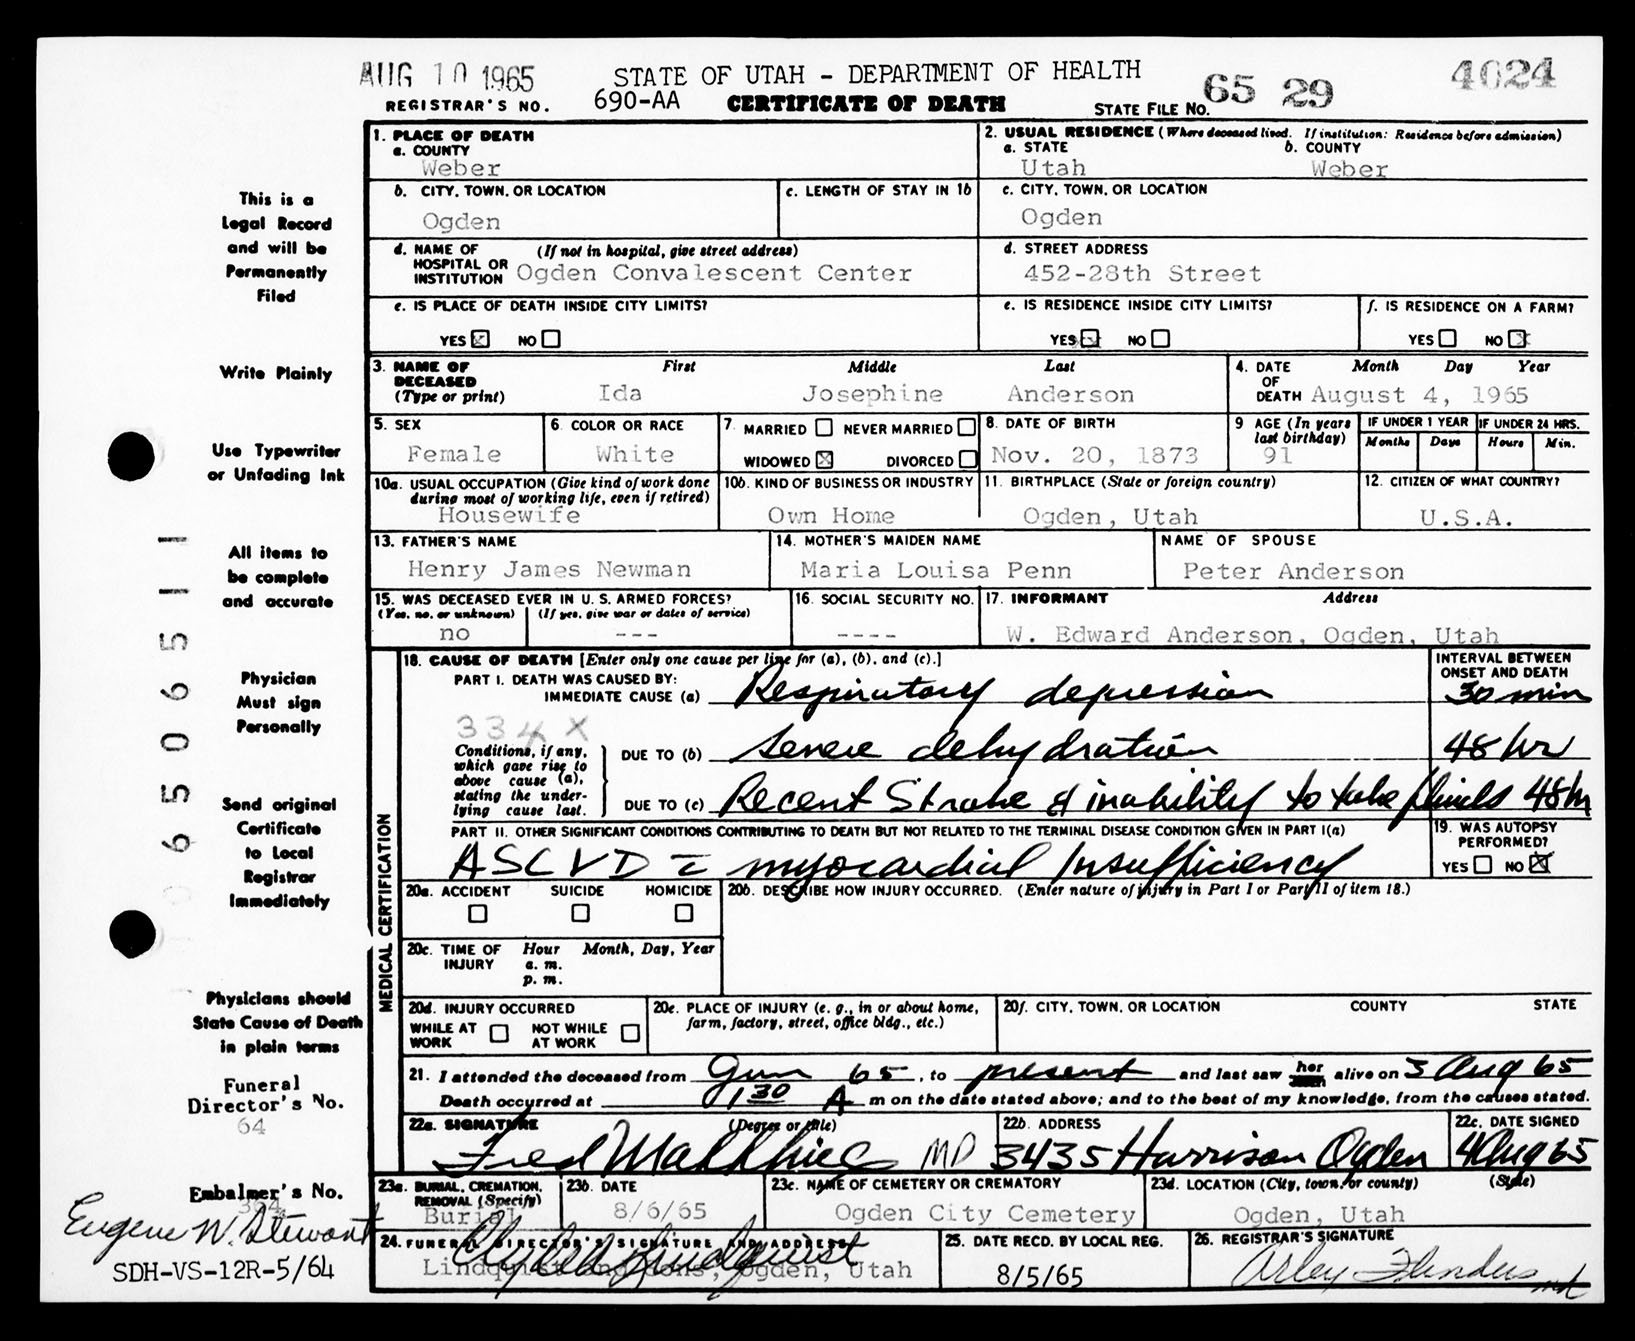 AUG 10 1965 STATE OF UTAH - DEPARTMENT OF HEALTH 4024
REGISTRAR'S NO. 690-AA CERTIFICATE OF DEATH STATE FILE NO. 65 29
1. PLACE OF DEATH
a. COUNTY
Weber
2. USUAL RESIDENCE (Where deceased lived. If institution: Residence before admission)
a. STATE b. COUNTY
Utah Weber
b. CITY, TOWN, OR LOCATION
Ogden
c. LENGTH OF STAY IN 1b
c. CITY, TOWN, OR LOCATION
Ogden
d. NAME OF (If not in hospital, give street address)
HOSPITAL OR
INSTITUTION Ogden Convalescent Center
d. STREET ADDRESS
452-28th Street
e. IS PLACE OF DEATH INSIDE CITY LIMITS?
YES X NO
e. IS RESIDENCE INSIDE CITY LIMITS?
YES X NO
f. IS RESIDENCE ON A FARM?
YES NO X
3. NAME OF First Middle Last
DECEASED
(Type or print) Ida Josephine Anderson
4. DATE Month Day Year
OF
DEATH August 4, 1965
5. SEX
Female
6. COLOR OR RACE
White
7. MARRIED NEVER MARRIED
WIDOWED X DIVORCED
8. DATE OF BIRTH
Nov. 20, 1873
9 AGE (In years
last birthday)
91
IF UNDER 1 YEAR
Months Days
IF UNDER 24 HRS.
Hours Min.
10a. USUAL OCCUPATION (Give kind of work done
during most of working life, even if retired)
Housewife
10b. KIND OF BUSINESS OR INDUSTRY
Own Home
11. BIRTHPLACE (State or foreign country)
Ogden, Utah
12. CITIZEN OF WHAT COUNTRY?
U.S.A.
13. FATHER'S NAME
Henry James Newman
14. MOTHER'S MAIDEN NAME
Maria Louisa Penn
NAME OF SPOUSE
Peter Anderson
15. WAS DECEASED EVER IN U. S. ARMED FORCES?
(Yes, no, or unknown) (If yes, give war or dates of service)
no ---
16. SOCIAL SECURITY NO.
----
17. INFORMANT Address
W. Edward Anderson, Ogden, Utah
MEDICAL CERTIFICATION
18. CAUSE OF DEATH [Enter only one cause per line for (a), (b), and (c).]
INTERVAL BETWEEN
ONSET AND DEATH
PART I. DEATH WAS CAUSED BY:
IMMEDIATE CAUSE (a) Respiratory depression 30 min
334 X
Conditions, if any,
which gave rise to
above cause (a),
stating the under-
lying cause last.
DUE TO (b) Severe dehydration 48 hr
DUE TO (c) Recent Stroke & inability to take fluids 48 hr
PART II. OTHER SIGNIFICANT CONDITIONS CONTRIBUTING TO DEATH BUT NOT RELATED TO THE TERMINAL DISEASE CONDITION GIVEN IN PART I(a)
ASCVD c myocardial Insufficiency
19. WAS AUTOPSY
PERFORMED?
YES NO X
20a. ACCIDENT SUICIDE HOMICIDE
20b. DESCRIBE HOW INJURY OCCURRED. (Enter nature of injury in Part I or Part II of item 18.)
20c. TIME OF Hour Month, Day, Year
INJURY a. m.
p. m.
20d. INJURY OCCURRED
WHILE AT
WORK
NOT WHILE
AT WORK
20e. PLACE OF INJURY (e. g., in or about home,
farm, factory, street, office bldg., etc.)
20f. CITY, TOWN, OR LOCATION COUNTY STATE
21. I attended the deceased from Jun 65, to present and last saw her alive on 3 Aug 65
Death occurred at 1 30 A m on the date stated above; and to the best of my knowledge, from the causes stated.
22a. SIGNATURE (Degree or title)
MD
22b. ADDRESS
3435 Harrison Ogden
22c. DATE SIGNED
4 Aug 65
23a. BURIAL, CREMATION,
REMOVAL (Specify)
Burial
23b. DATE
8/6/65
23c. NAME OF CEMETERY OR CREMATORY
Ogden City Cemetery
23d. LOCATION (City, town, or county) (State)
Ogden, Utah
24. FUNERAL DIRECTOR'S SIGNATURE AND ADDRESS
Lindquist and Sons, Ogden, Utah
25. DATE RECD. BY LOCAL REG.
8/5/65
26. REGISTRAR'S SIGNATURE
This is a
Legal Record
and will be
Permanently
Filed
Write Plainly
Use Typewriter
or Unfading Ink
All items to
be complete
and accurate
Physician
Must sign
Personally
Send original
Certificate
to Local
Registrar
Immediately
Physicians should
State Cause of Death
in plain terms
Funeral
Director's No.
64
Embalmer's No.
364
Eugene W. Stewart
SDH-VS-12R-5/64